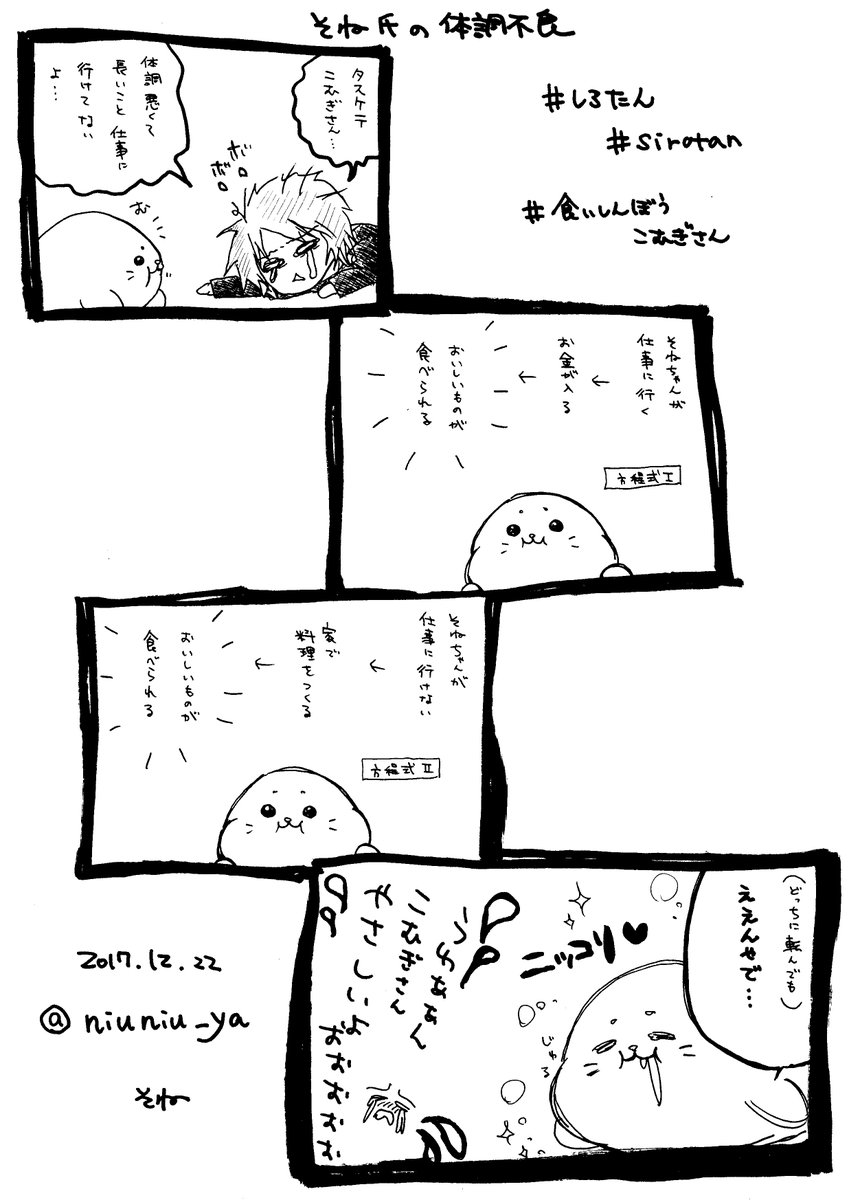 そね氏の体調不良
#しろたん
#sirotan
#食いしんぼう
こむぎさん
タスケテ
こむぎさん…
体調悪くて
長いこと仕事に
行けてない
よ…
ボロ
ボロ
む
そねちゃんが
仕事に行く
←
お金が入る
←
おいしいものが
食べられる
方程式Ⅰ
そねちゃんが
仕事に行けない
←
家で
料理をつくる
←
おいしいものが
食べられる
方程式Ⅱ
(どっちに転んでも)
ええんやで…
ニッコリ♥
じゅる
うわああん
こむぎさん
やさしいよ
おおおおお
2017.12.22
@niuniu_ya
そね